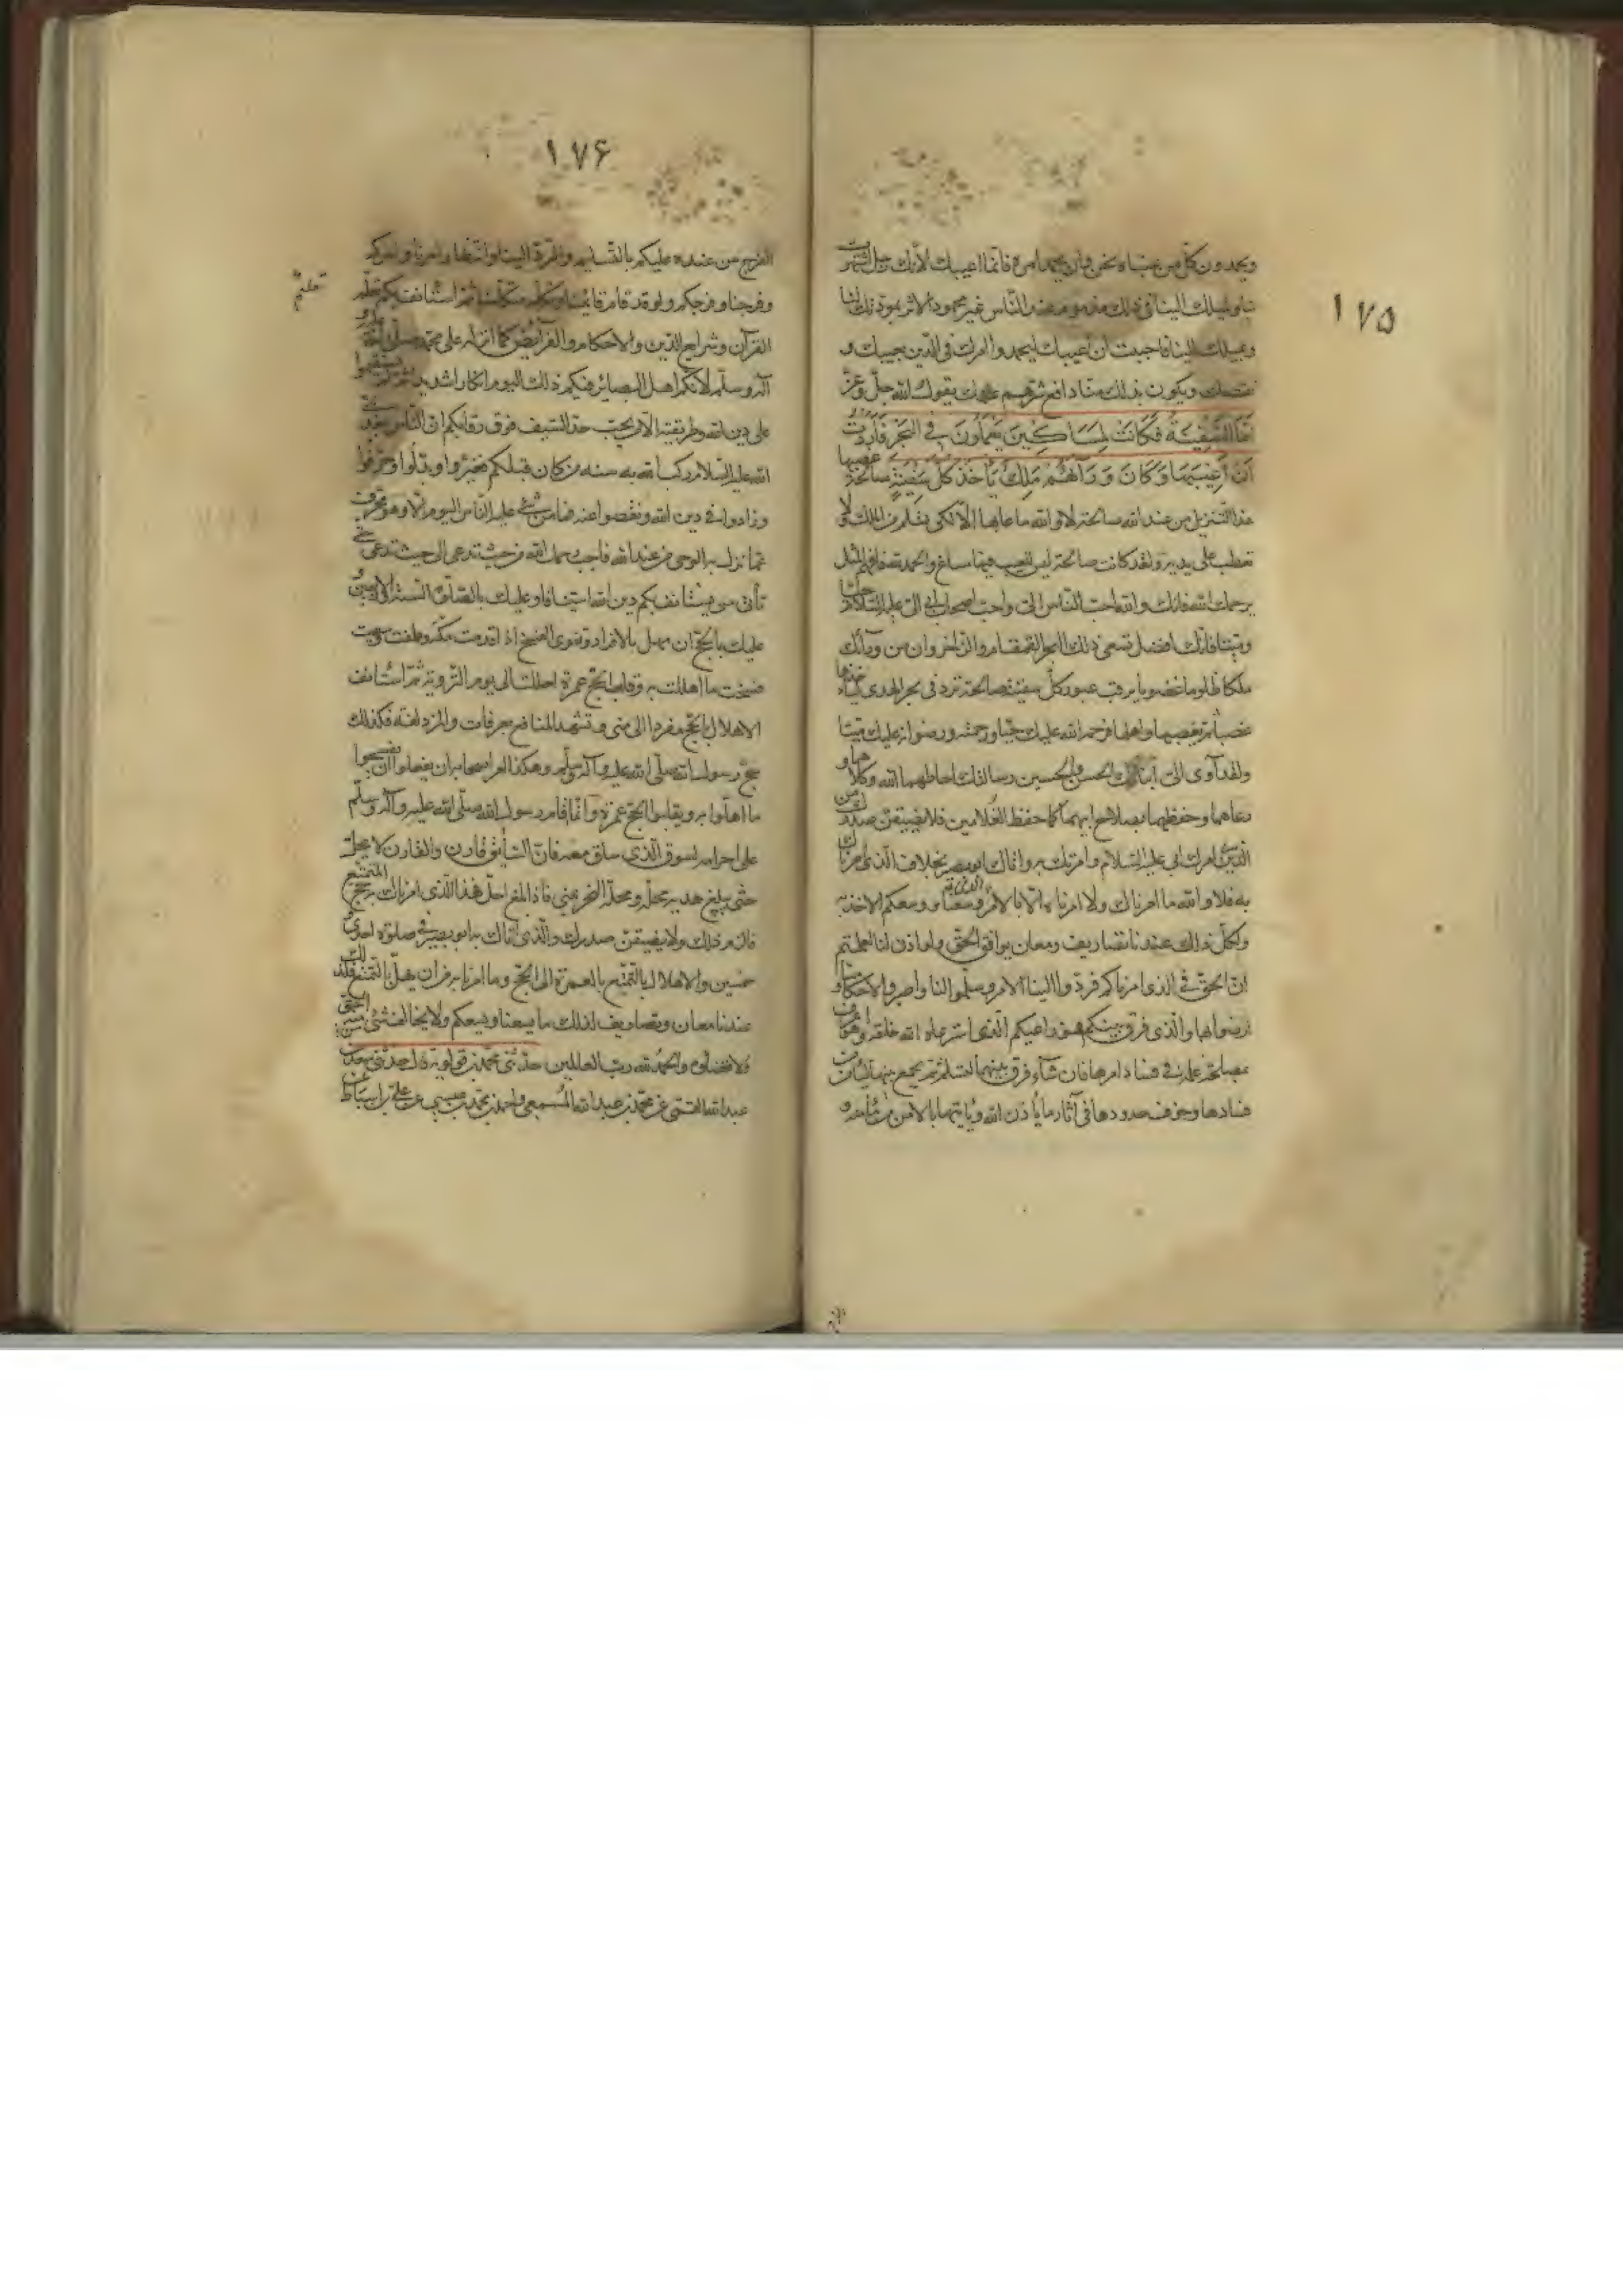 ١٧۵
ويحمدون كل من عبناه نحن وان يحمد امره فانما اعيبك لانك رجل اشتهرت
بنا ولميلك الينا في ذلك مذموم عند الناس غير محمود الاثر بمودتك لنا
وبميلك الينا فاحببت ان اعيبك ليحمدوا امرك في الدين بعيبك و
نقصك ويكون بذلك منا دافع شرهم عنك يقول الله جل وعز
أَمَّا السَّفِينَةُ فَكَانَتْ لِمَسَاكِينَ يَعْمَلُونَ فِي الْبَحْرِ فَأَرَدْتُ
أَنْ أَعِيبَهَا وَكَانَ وَرَاءَهُمْ مَلِكٌ يَأْخُذُ كُلَّ سَفِينَةٍ صالحة غصبا
هذا التنزيل من عند الله صالحة لا والله ما عابها الا لكي تسلم من الملك ولا
تعطب على يديه ولقد كانت صالحة ليس للعيب فيها مساغ والحمد لله فافهم المثل
يرحمك الله فانك والله احب الناس الي واحب اصحاب ابي الي عليه السلام حيا
وميتا فانك افضل سفن ذلك البحر القمقام الزاخر وان من ورائك
ملكا ظلوما غصوبا يرقب عبور كل سفينة صالحة ترد في بحر الهدى لياخذها
غصبا ثم يغصبها واهلها فرحمة الله عليك حيا ورحمته ورضوانه عليك ميتا
ولقد ادى الي ابناك الحسن والحسين رسالتك احاطهما الله وكلاهما و
رعاهما وحفظهما بصلاح ابيهما كما حفظ الغلامين فلا يضيقن صدرك من
الذي امرك ابي عليه السلام وامرتك به واتاك ابو بصير بخلاف الذي امرناك
به فلا والله ما امرناك ولا امرناه الا بامر وسعنا ووسعكم الاخذ به
ولكل ذلك عندنا تصاريف ومعان يوافق الحق ولو اذن لنا لعلمتم
ان الحق في الذي امرناكم فردوا الينا الامر وسلموا لنا واصبروا لاحكامنا و
ارضوا بها والذي فرق بينكم فهو راعيكم الذي استرعاه الله خلقه وهو اعرف
بمصلحة غنمه في فساد امرها فان شاء فرق بينهما لتسلم ثم يجمع بينهما ليأمن من
فسادها وخوف عدوها في آثار ما يأذن الله ويأتيها بالامن من مأمنه و
١٧۶
الفرج من عنده عليكم بالتسليم والرد الينا وانتظار امرنا وامركم
وفرجنا وفرجكم ولو قد قام قائمنا وتكلم متكلمنا ثم استأنف بكم تعلم
تعليم
القرآن وشرايع الدين والاحكام والفرائض كما انزله على محمد صلى الله عليه و
آله وسلم لانكر اهل البصائر فيكم ذلك اليوم انكارا شديدا ثم لم تستقيموا
على دين الله وطريقته الا من تحت حد السيف فوق رقابكم ان الناس بعد نبي
الله عليه السلام ركب الله به سنة من كان قبلكم فغيروا وبدلوا وحرفوا
وزادوا في دين الله ونقصوا عنه فما من شيء عليه الناس اليوم الا وهو محرف
عما نزل به الوحي من عند الله فاجب رحمك الله من حيث تدعى الى حيث تدعى حتى
يأتي من يستأنف بكم دين الله استينافا وعليك بالصلوة الستة الاربعين و
عليك بالحج ان تهل بالافراد وتنوي الفسخ اذا قدمت مكة وطفت وسعيت
فسخت ما اهللت به وقلبت الحج عمرة احللت الى يوم التروية ثم استأنف
الاهلال بالحج مفردا الى منى وتشهد المنافع بعرفات والمزدلفة فكذلك
حج رسول الله صلى الله عليه وآله وسلم وهكذا امر اصحابه ان يفعلوا ان يفسخوا
ما اهلوا به ويقلبوا الحج عمرة وانما اقام رسول الله صلى الله عليه وآله وسلم
على احرامه لسوق الذي ساق معه فان السائق قارن والقارن لا يحل
حتى يبلغ هديه محله ومحله النحر بمنى فاذا بلغ احل فهذا الذي امرناك به حج المتمتع
فالزم ذلك ولا يضيقن صدرك والذي اتاك به ابو بصير في صلوة احدى و
خمسين والاهلال بالتمتع بالعمرة الى الحج وما امرنا به من ان يهل بالتمتع فلذلك
عندنا معان وتصاريف لذلك ما يسعنا ويسعكم ولا يخالف شيء منه الحق
ولا يضاده والحمد لله رب العالمين حدثني محمد بن قولويه قال حدثني سعد بن
عبد الله القمي عن محمد بن عبد الله المسمعي واحمد بن محمد بن عيسى عن علي بن اسباط